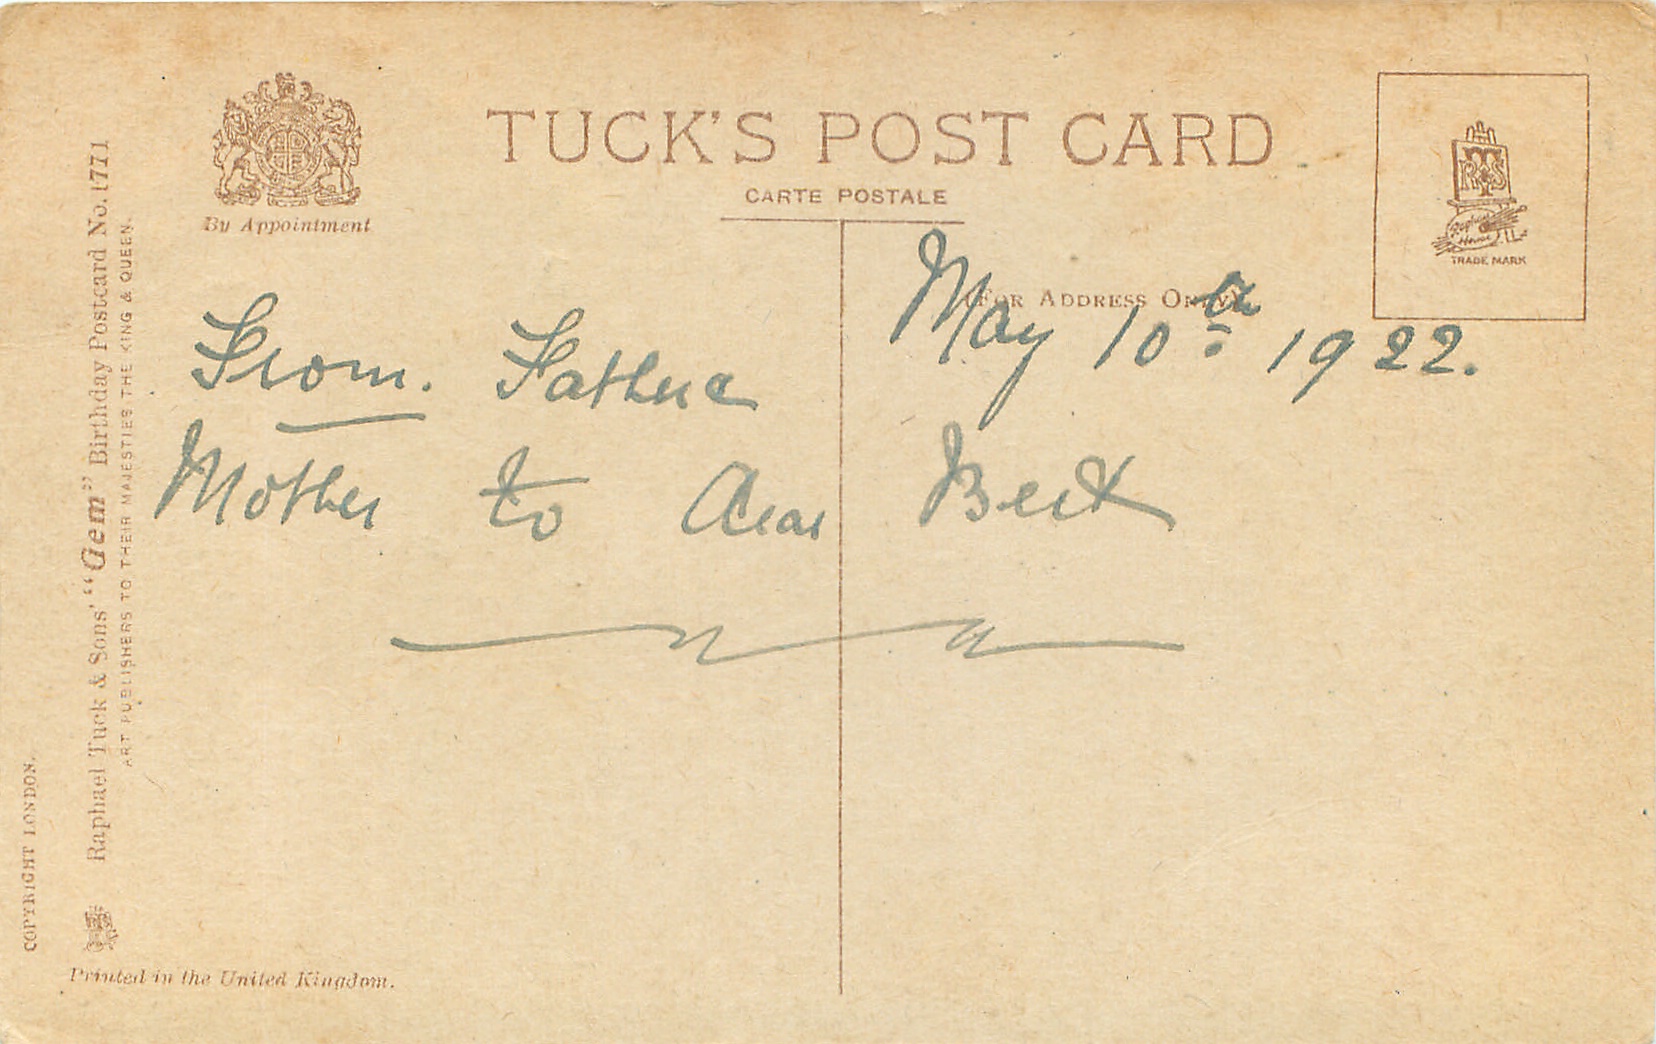 TUCK'S POST CARD
CARTE POSTALE
By Appointment
(FOR ADDRESS ONLY)
RTS
Raphael House
TRADE MARK
May 10th 1922.
From. Father
Mother to Dear Bert
COPYRIGHT LONDON.
Raphael Tuck & Sons' "Gem" Birthday Postcard No. 1771
ART PUBLISHERS TO THEIR MAJESTIES THE KING & QUEEN.
Printed in the United Kingdom.